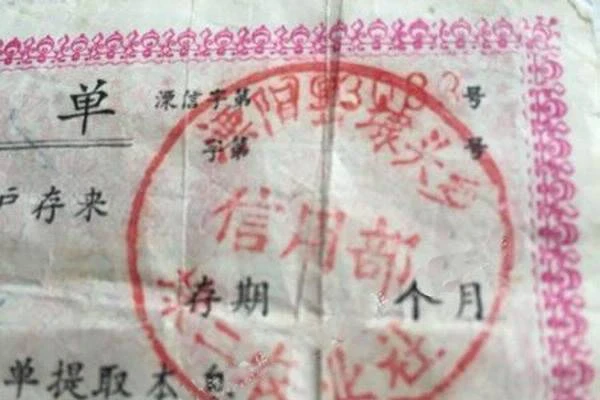 单 溧信字第 3083 号
字第 号
溧阳县埭头乡
户存来
信用部
存期 个月
单提取本息